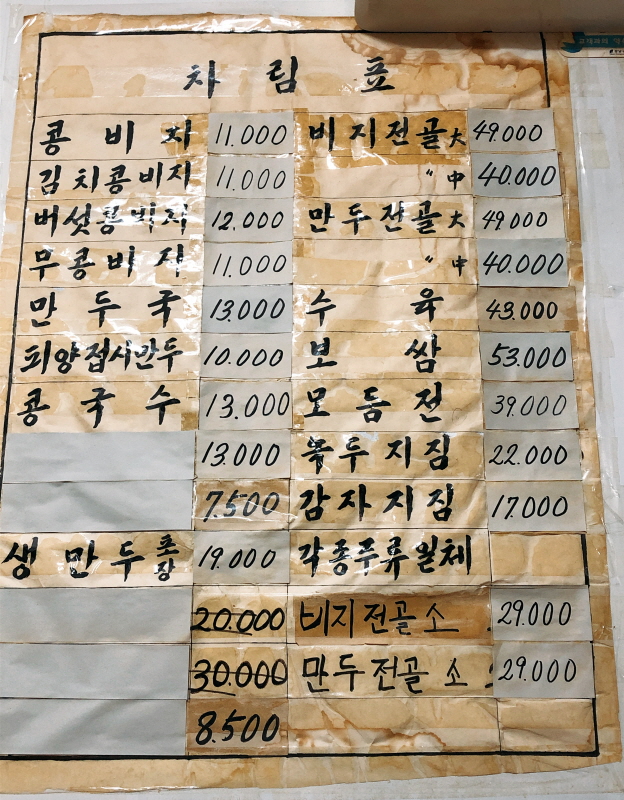 차림표
콩비지 11.000 비지전골 大 49.000
김치콩비지 11.000 〃 中 40.000
버섯콩비지 12.000 만두전골 大 49.000
무콩비지 11.000 〃 中 40.000
만두국 13.000 수육 43.000
피양접시만두 10.000 보쌈 53.000
콩국수 13.000 모듬전 39.000
13.000 녹두지짐 22.000
7.500 감자지짐 17.000
생만두 포장 19.000 각종주류일체
20.000 비지전골 소 29.000
30.000 만두전골 소 29.000
8.500